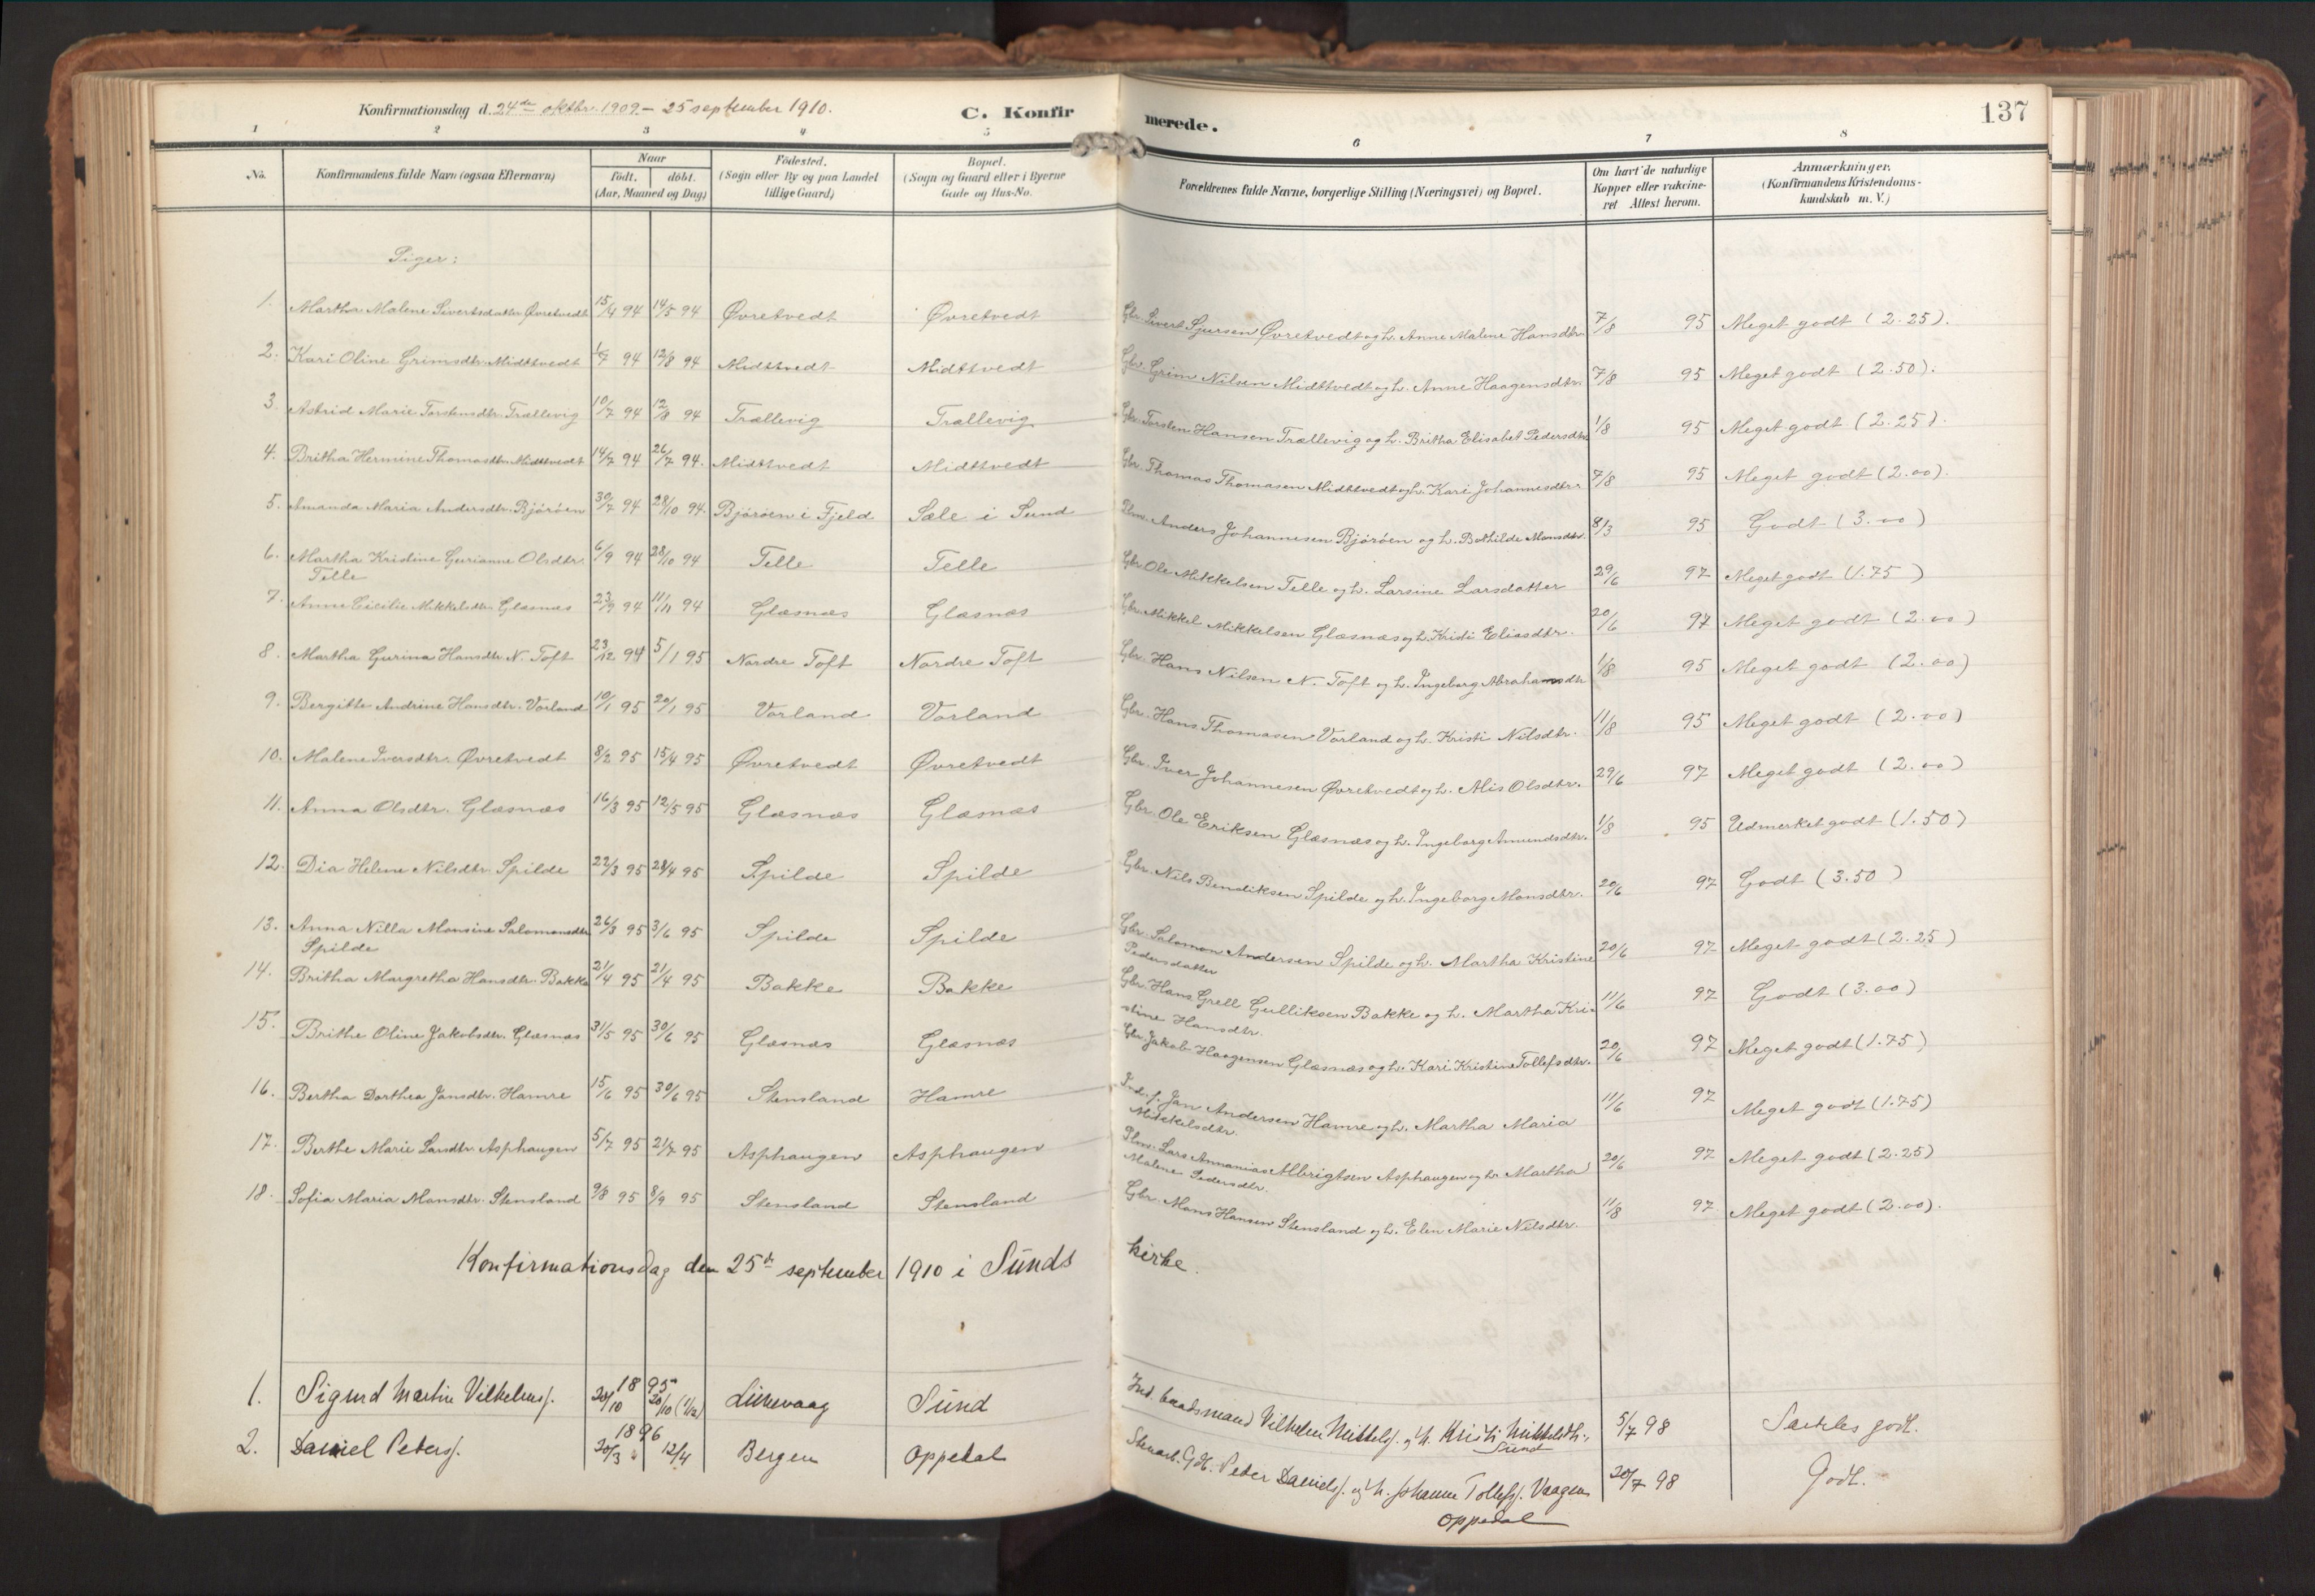 Konfirmationsdag d. 24de oktbr. 1909. – 25 september 1910.
C. Konfir
merede.
137
1 2 3 4 5 6 7 8
No.
Konfirmandens fulde Navn (ogsaa Efternavn)
Naar
født. døbt.
(Aar, Maaned og Dag)
Fødested.
(Sogn eller By og paa Landet
tillige Gaard)
Bopæl.
(Sogn og Gaard eller i Byerne
Gade og Hus-No.
Forældrenes fulde Navne, borgerlige Stilling (Næringsvei) og Bopæl.
Om havt de naturlige
Kopper eller vakcine-
ret Attest herom.
Anmærkninger.
(Konfirmandens Kristendoms-
kundskab m. V.)
Piger:
1. Martha Malene Sivertsdatter Øvretvedt 15/4 94 14/5 94 Øvretvedt Øvretvedt Gbr. Sivert Sjursen Øvretvedt og h. Anne Malene Hansdtr. 7/8 95 Meget godt (2.25).
2. Kari Oline Grimsdtr. Midttvedt 94 12/8 94 Midttvedt Midttvedt Gbr. Grim Nilsen Midttvedt og h. Anne Haagensdtr. 7/8 95 Meget godt (2.50).
3. Astrid Marie Torstensdtr. Trællevig 10/7 94 12/8 94 Trællevig Trællevig Gbr. Torsten Hansen Trællevig og h. Britha Elisabet Pedersdtr. 1/8 95 Meget godt (2.25).
4. Britha Hermine Thomasdtr. Midttvedt 14/7 94 26/7 94. Midttvedt Midttvedt Gbr. Thomas Thomasen Midttvedt og h. Kari Johannesdtr. 7/8 95 Meget godt (2.00).
5. Amanda Maria Andersdtr. Bjørøen 30/7 94 28/10 94. Bjørøen i Fjeld Sæle i Sund Plm. Anders Johannesen Bjørøen og h. Bothilde Monsdtr. 8/3 95 Godt (3.00)
6. Martha Kristine Gurianne Olsdtr. 6/9 94 28/10 94 Telle Telle Gbr. Ole Mikkelsen Telle og h. Larsine Larsdatter 29/6 97 Meget godt (1.75)
Telle
7. Anne Cicilie Mikkelsdtr. Glæsnæs 23/9 94 11/11 94 Glæsnæs Glæsnæs Gbr. Mikkel Mikkelsen Glæsnæs og h. Kristi Eliasdtr. 20/6 97 Meget godt (2.00)
8. Martha Gurina Hansdtr. N. Toft 23/12 94 5/1 95 Nordre Toft Nordre Toft Gbr. Hans Nilsen N. Toft og h. Ingeborg Abrahamsdtr 1/8 95 Meget godt (2.00)
9. Bergitte Andrine Hansdtr. Vorland 10/1 95 20/1 95 Vorland Vorland Gbr. Hans Thomasen Vorland og h. Kristi Nilsdtr. 11/8 95 Meget godt (2.00)
10. Malene Iversdtr. Øvretvedt 8/2 95 15/4 95 Øvretvedt Øvretvedt Gbr. Iver Johannesen Øvretvedt og h. Alis Olsdtr. 29/6 97 Meget godt (2.00)
11. Anna Olsdtr. Glæsnæs 16/3 95 12/5 95 Glæsnæs Glæsnæs Gbr. Ole Eriksen Glæsnæs og h. Ingeborg Amundsdtr. 1/8 95 Udmerket godt (1.50)
12. Dia Helene Nilsdtr. Spilde 22/3 95 28/4 95 Spilde Spilde Gbr. Nils Bendiksen Spilde og h. Ingeborg Monsdtr. 20/6 97 Godt (3.50)
13. Anna Nilla Monsine Salomonsdtr 26/3 95 3/6 95 Spilde Spilde Gbr. Salomon Andersen Spilde og h. Martha Kristine 20/6 97 Meget godt (2.25)
Spilde Pedersdatter
14. Britha Margretha Hansdtr. Bakke 21/4 95 21/4 95 Bakke Bakke Gbr. Hans Grell Gulliksen Bakke og h. Martha Kri- 11/6 97 Godt (3.00)
stine Hansdtr.
15. Brithe Oline Jakobsdtr. Glæsnæs 31/5 95 30/6 95 Glæsnæs Glæsnæs Gbr. Jakob Haagensen Glæsnæs og h. Kari Kristine Tollefsdtr. 20/6 97 Meget godt (1.75)
16. Bertha Dorthea Jansdtr. Hamre 15/6 95 30/6 95 Stensland Hamre Ind. f. Jan Andersen Hamre og h. Martha Maria 11/6 97 Meget godt (1.75)
Mikkelsdtr.
17. Berthe Marie Larsdtr. Asphaugen 5/7 95 21/7 95 Asphaugen Asphaugen Plm. Lars Annanias Albrigtsen Asphaugen og h. Martha 20/6 97 Meget godt (2.25)
Malene Pedersdtr.
18. Sofia Maria Monsdtr. Stensland 9/8 95 8/9 95 Stensland Stensland Gbr. Mons Hansen Stensland og h. Elen Marie Nilsdtr. 11/8 97 Meget godt (2.00).
Konfirmationsdag den 25de september 1910 i Sunds kirke.
1895
1. Sigurd Martin Vilhelms. 20/10 20/10 (1/12) Sund Ind. baadsmand Vilhelm Mikkels. og h. Kristi Mikkeldtr., 5/7 98 Særdeles godt.
Sund
1896
2. Daniel Peters. 30/3 12/4 Bergen Oppedal Peder Daniels. og h. Johanne Tollefs. Vaagen 20/7 98 Godt.
Oppedal